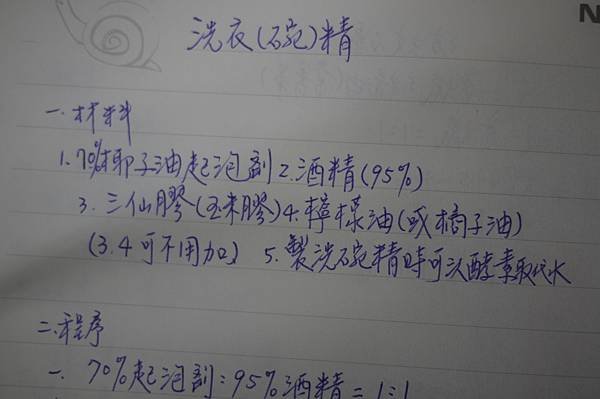 N
洗衣(碗)精
一.材料
1.70%椰子油起泡劑 2.酒精(95%)
3.三仙膠(玉米膠) 4.檸檬油(或橘子油)
(3.4可不用加) 5.製洗碗精時可以酵素取代水
二.程序
一. 70%起泡劑:95%酒精=1:1